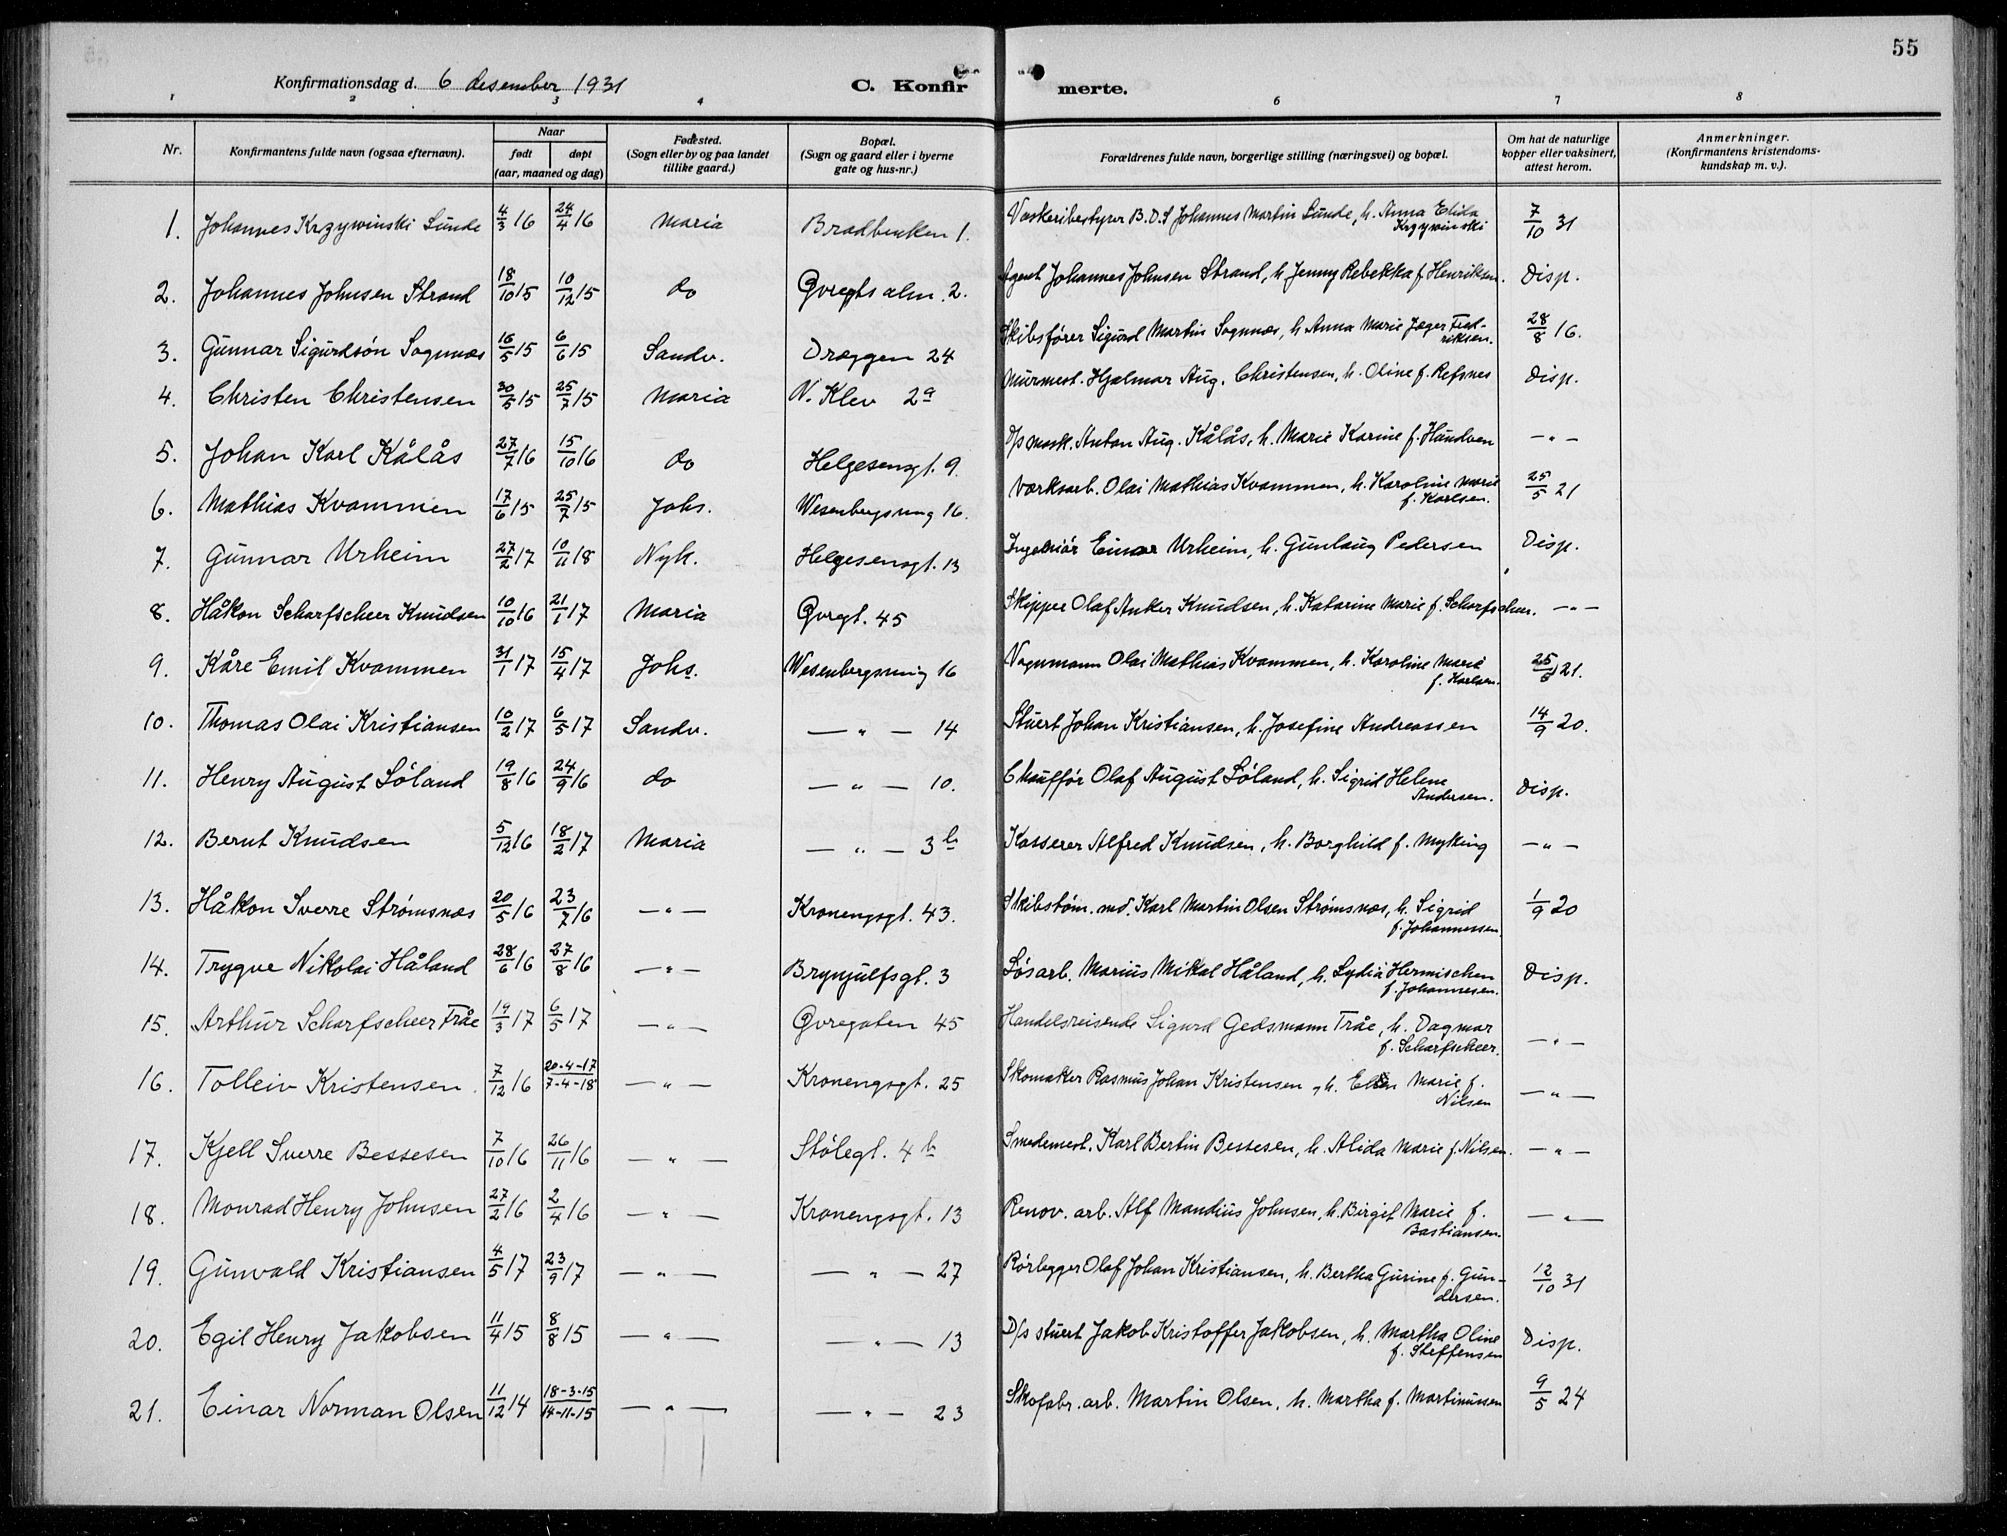 55
Konfirmationsdag d. 6 desember 1931
C. Konfirmerte.
1 2 3 4 6 7 8
Nr.
Konfirmantens fulde navn (ogsaa efternavn).
Naar
født døpt
(aar, maaned og dag)
Fødested.
(Sogn eller by og paa landet
tillike gaard.)
Bopæl.
(Sogn og gaard eller i byerne
gate og hus-nr.)
Forældrenes fulde navn, borgerlige stilling (næringsvei) og bopæl.
Om hat de naturlige
kopper eller vaksinert,
attest herom.
Anmerkninger.
(Konfirmantens kristendoms-
kundskap m. v.).
1. Johannes Krzywinski Sunde 4/3 16 24/4 16 Maria Bradbenken 1. Vaskeribestyrer B.D.S Johannes Martin Sunde, h. Anna Elida 7/10 31
Krzywinski
2. Johannes Johnsen Strand 18/10 15 10/12 15 do Øvregts alm. 2. Agent Johannes Johnsen Strand, h. Jenny Rebekka f. Henriksen. Disp.
3. Gunnar Sigurdsön Sognnæs 16/5 15 6/6 15 Sandv. Dræggen 24 Skibsfører Sigurd Martin Sognnæs, h. Anna Marie Jæger Fred- 28/8 16.
riksen.
4. Christen Christensen 30/5 15 25/7 15 Maria N. Klev 2a Murmest. Hjalmar Aug. Christensen, h. Oline f. Refsnes Disp.
5. Johan Karl Kålås 27/7 16 15/10 16 do Helgesensgt. 9. D/s mask. Anton Aug. Kålås, h. Marie Karine f. Handven — " —
6. Mathias Kvammen 17/6 15 25/7 15 Johs. Wesenbergsmug 16. Værksarb. Olai Mathias Kvammen, h. Karoline Marie 25/5 21
f. Karlsen.
7. Gunnar Urheim 27/2 17 10/11 18 Nyk. Helgesensgt. 13 Ingeniør Einar Urheim, h. Gunlaug Pedersen Disp.
8. Håkon Scharfscheer Knudsen 10/10 16 21/1 17 Maria Øvregt. 45 Skipper Olaf Anker Knudsen, h. Katarine Marie f. Scharfscheer. — " —
9. Kåre Emil Kvammen 31/1 17 15/4 17 Johs. Wesenbergsmug 16 Vognmann Olai Mathias Kvammen, h. Karoline Marie 25/5 21.
f. Karlsen.
10. Thomas Olai Kristiansen 10/2 17 6/5 17 Sandv. — " — 14 Stuert Johan Kristiansen, h. Josefine Andreassen 14/9 20.
11. Henry August Söland 19/8 16 24/9 16 do — " — 10. Chauffør Olaf August Söland, h. Sigrid Helene Disp.
Andersen.
12. Bernt Knudsen 5/12 16 18/2 17 Maria — " — 3b Kasserer Alfred Knudsen, h. Borghild f. Myking — " —
13. Håkon Sverre Strømsnæs 20/5 16 23/7 16 — " — Kronengsgt. 43. Skibstøm. md. Karl Martin Olsen Strømsnæs, h. Sigrid 1/9 20
f. Johannessen.
14. Trygve Nikolai Håland 28/6 16 27/8 16 — " — Brynjulfsgt. 3 Løsarb. Marius Mikal Håland, h. Lydia Hermischen Disp.
f. Johannesen.
15. Arthur Scharfscheer Tråe 19/3 17 6/5 17 — " — Øvregaten 45 Handelsreisende Sigurd Gedsmann Tråe, h. Dagmar
f. Scharfscheer. — " —
16. Tolleiv Kristensen. 7/12 16 20-4-17/7-4-18 — " — Kronengsgt. 25 Skomaker Rasmus Johan Kristensen, h. Ellen Marie f.
Nilsen — " —
17. Kjell Sverre Bessesen 7/10 16 26/11 16 — " — Stölegt. 4b Smedemest. Karl Bertin Bessesen, h. Alida Marie f. Nilsen. — " —
18. Monrad Henry Johnsen 27/2 16 2/4 16 — " — Kronengsgt. 13 Renov. arb. Alf Mandius Johnsen, h. Birgit Marie f. — " —
Bastiansen.
19. Gunvald Kristiansen 4/5 17 23/9 17 — " — — " — 27 Rørlegger Olaf Johan Kristiansen, h. Bertha Gurine f. Gun- 12/10 31
dersen.
20. Egil Henry Jakobsen 11/4 15 8/8 15 — " — — " — 13 D/s stuert Jakob Kristoffer Jakobsen, h. Martha Oline Disp.
f. Steffensen
21. Einar Norman Olsen 11/12 14 18-3-15/14-11-15 — " — — " — 23 Skofabr. arb. Martin Olsen, h. Martha f. Martinussen 9/5 24